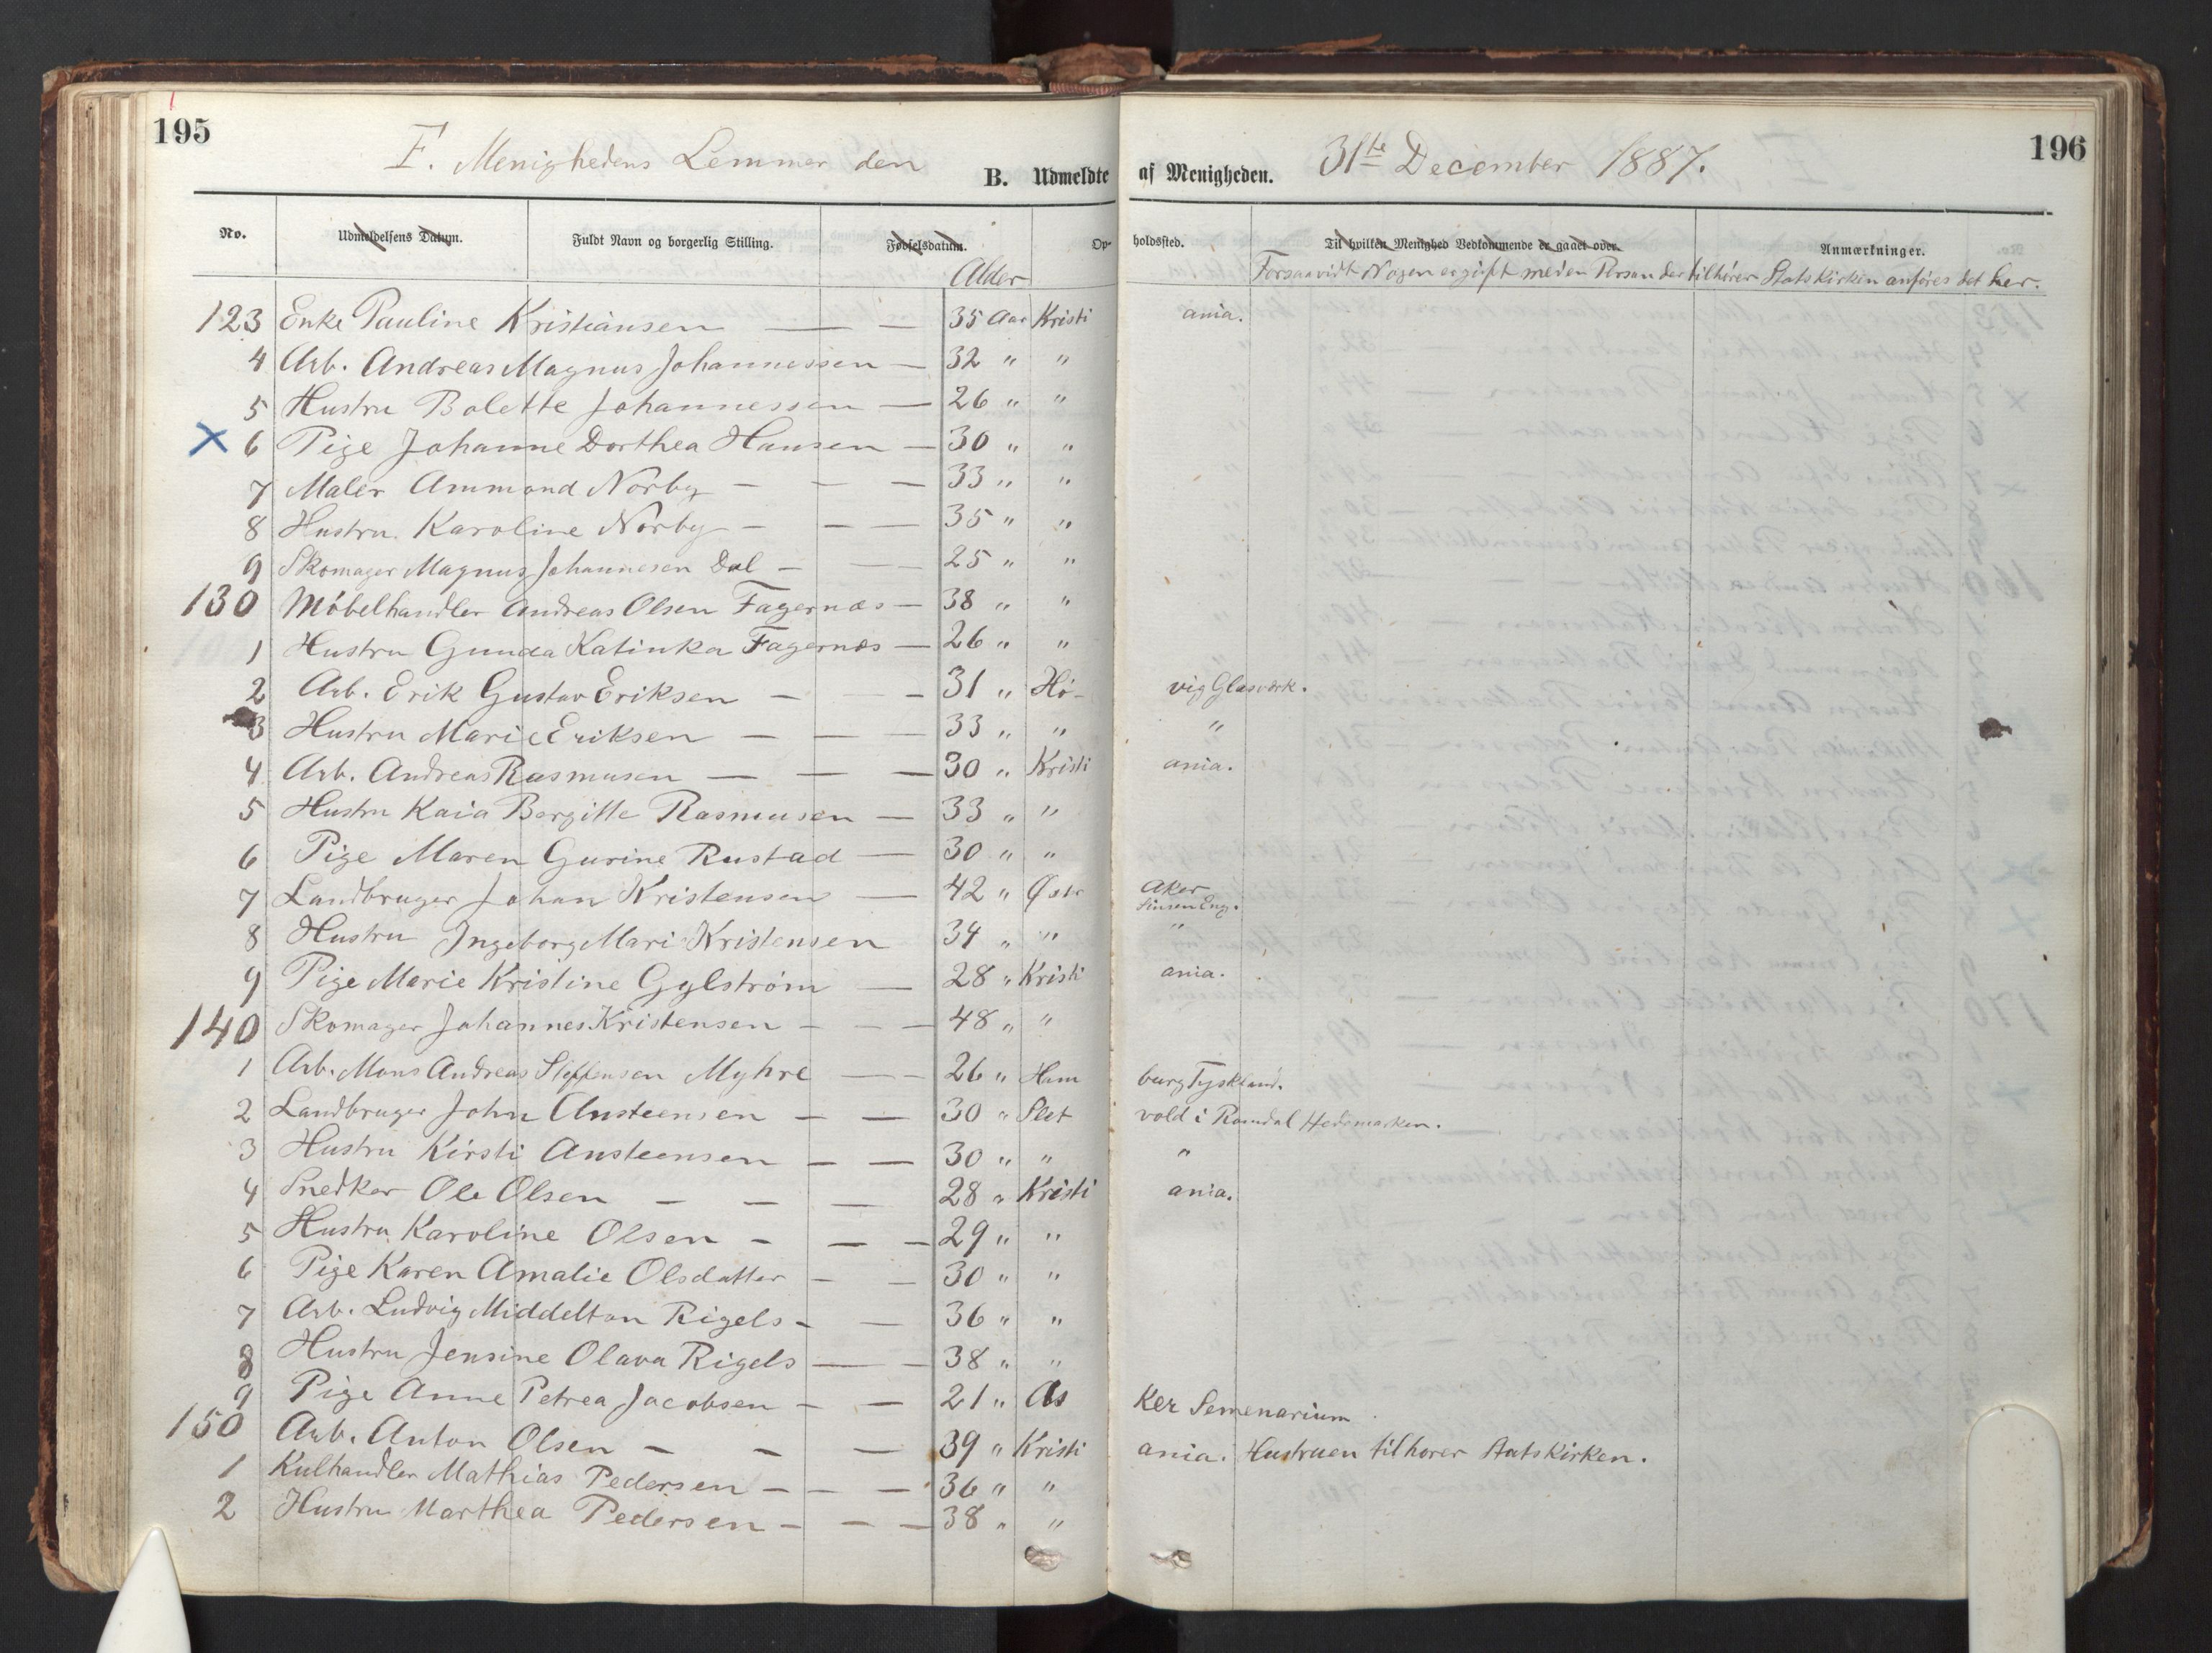 195
196
F. Menighedens Lemmer den 31te December 1887.
B. Udmeldte af Menigheden.
No. Udmeldelsens Datum. Fuldt Navn og borgerlig Stilling. Fødselsdatum. Opholdssted. Til hvilken Menighed Vedkommende er gaaet over. Anmærkninger.
Alder Forsaavidt Nogen er gift med en Person der tilhører Statskirken anføres det her.
123 Enke Pauline Kristiansen — — 35 Aar Kristiania.
4 Arb. Andreas Magnus Johannessen — 32 " "
5 Hustru Bolette Johannessen — 26 " "
x 6 Pige Johanne Dorthea Hansen — 30 " "
7 Maler Ammond Norby — — — 33 " "
8 Hustru Karoline Norby — — — 35 " "
9 Skomager Magnus Johannesen Dal — — — 25 " "
130 Möbelhandler Andreas Olsen Fagernæs — 38 " "
1 Hustru Gunda Katinka Fagernæs — 26 " "
2 Arb. Erik Gustav Eriksen — — — 31 " Hö-vig Glasværk.
3 Hustru Marie Eriksen — — — 33 " " "
4 Arb. Andreas Rasmusen — — — 30 " Kristiania.
5 Hustru Kaia Bergitte Rasmusen — 33 " "
6 Pige Maren Gurine Rustad — 30 " "
7 Landbruger Johan Kristensen — 42 " Østr Aker
Sinsen Eng.
8 Hustru Ingeborg Mari Kristensen 34 " " "
9 Pige Marie Kristine Gylstrøm — 28 " Kristiania.
140 Skomager Johannes Kristensen — — — 48 " "
1 Arb. Mons Andreas Steffensen Myhre — — 26 " Hamburg Tyskland.
2 Landbruger John Austeensen — — 30 " Sletvold i Romdal Hedemarken.
3 Hustru Kirsti Austeensen — — 30 " " "
4 Snedker Ole Olsen — — — 28 " Kristiania.
5 Hustru Karoline Olsen — — — 29 " "
6 Pige Karen Amalie Olsdatter — — 30 " "
7 Arb. Ludvig Middelton Rigels — — 36 " "
8 Hustru Jensine Olava Rigels — — 38 " "
9 Pige Anne Petrea Jacobsen — — 21 " Asker Semenarium
150 Arb. Anton Olsen — — — 39 " Kristiania. Hustruen tilhører Statskirken.
1 Kulhandler Mathias Pedersen — — — 36 " "
2 Hustru Marthea Pedersen — — — 38 " "